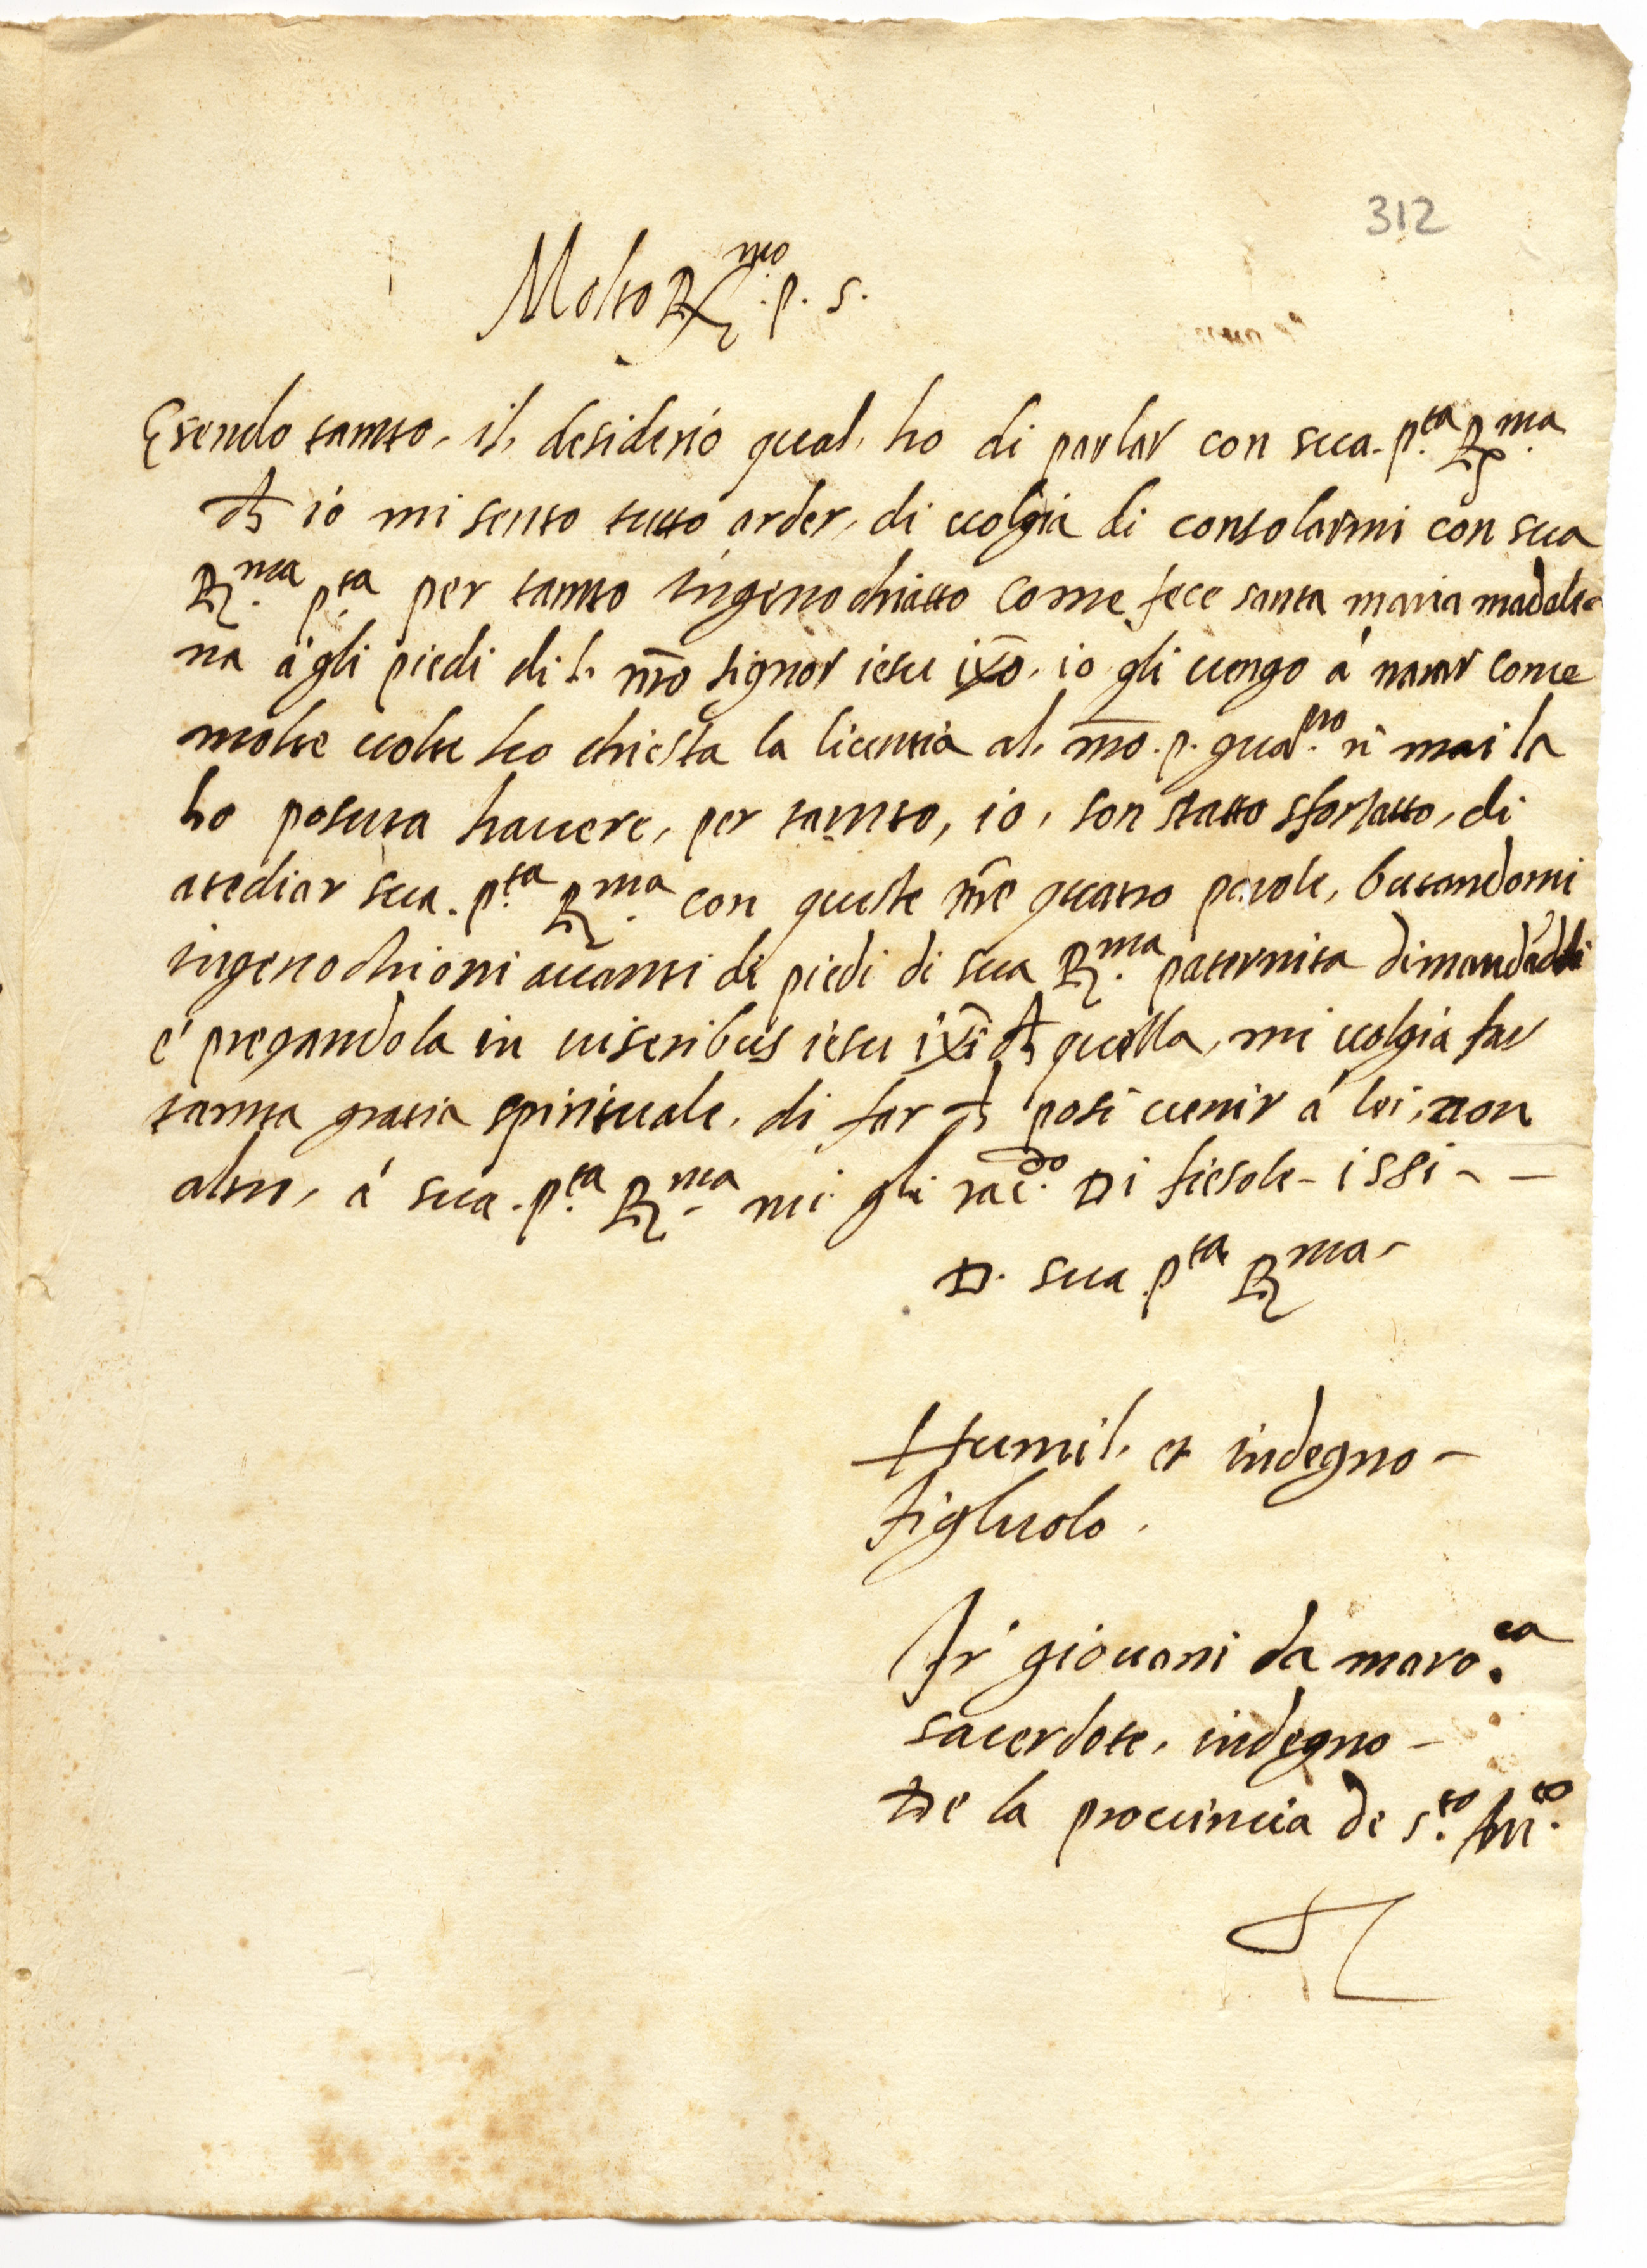 312
Molto R.mo p. s.
Esendo tanto, il, desiderio qual, ho di parlar con sua. p.ta R.ma
ch io mi sento tutto arder, di uolgia di consolarmi con sua
R.ma p.ta per tanto ingenochiatto come fece santa maria madale-
na á gli piedi dil nr̄o signor iesu ixō. io gli uengo á narar come
molte uolte ho chiesta la licentia al, nr̄o. p. gua.no ń mai la
ho potuta hauere, per tanto, io, son statto sforzatto, di
atediar sua. p.ta R.ma con queste mie quatro parole, butandomi
ingenochioni auanti di piedi di sua R.ma paternita
e' pregandola in uiseribus iesu ixī ch quella, mi uolgia far
tanta gratia spirituale, di far ch posi uenir á lei, non
altro, á sua. p.ta R.ma mi gli rac.do Di fiesole
D. sua p.ta R.ma
Humil, et indegno
figluolo.
fr' giouani da maro.ca
sacerdote, indegno
De la prouincia de s.to